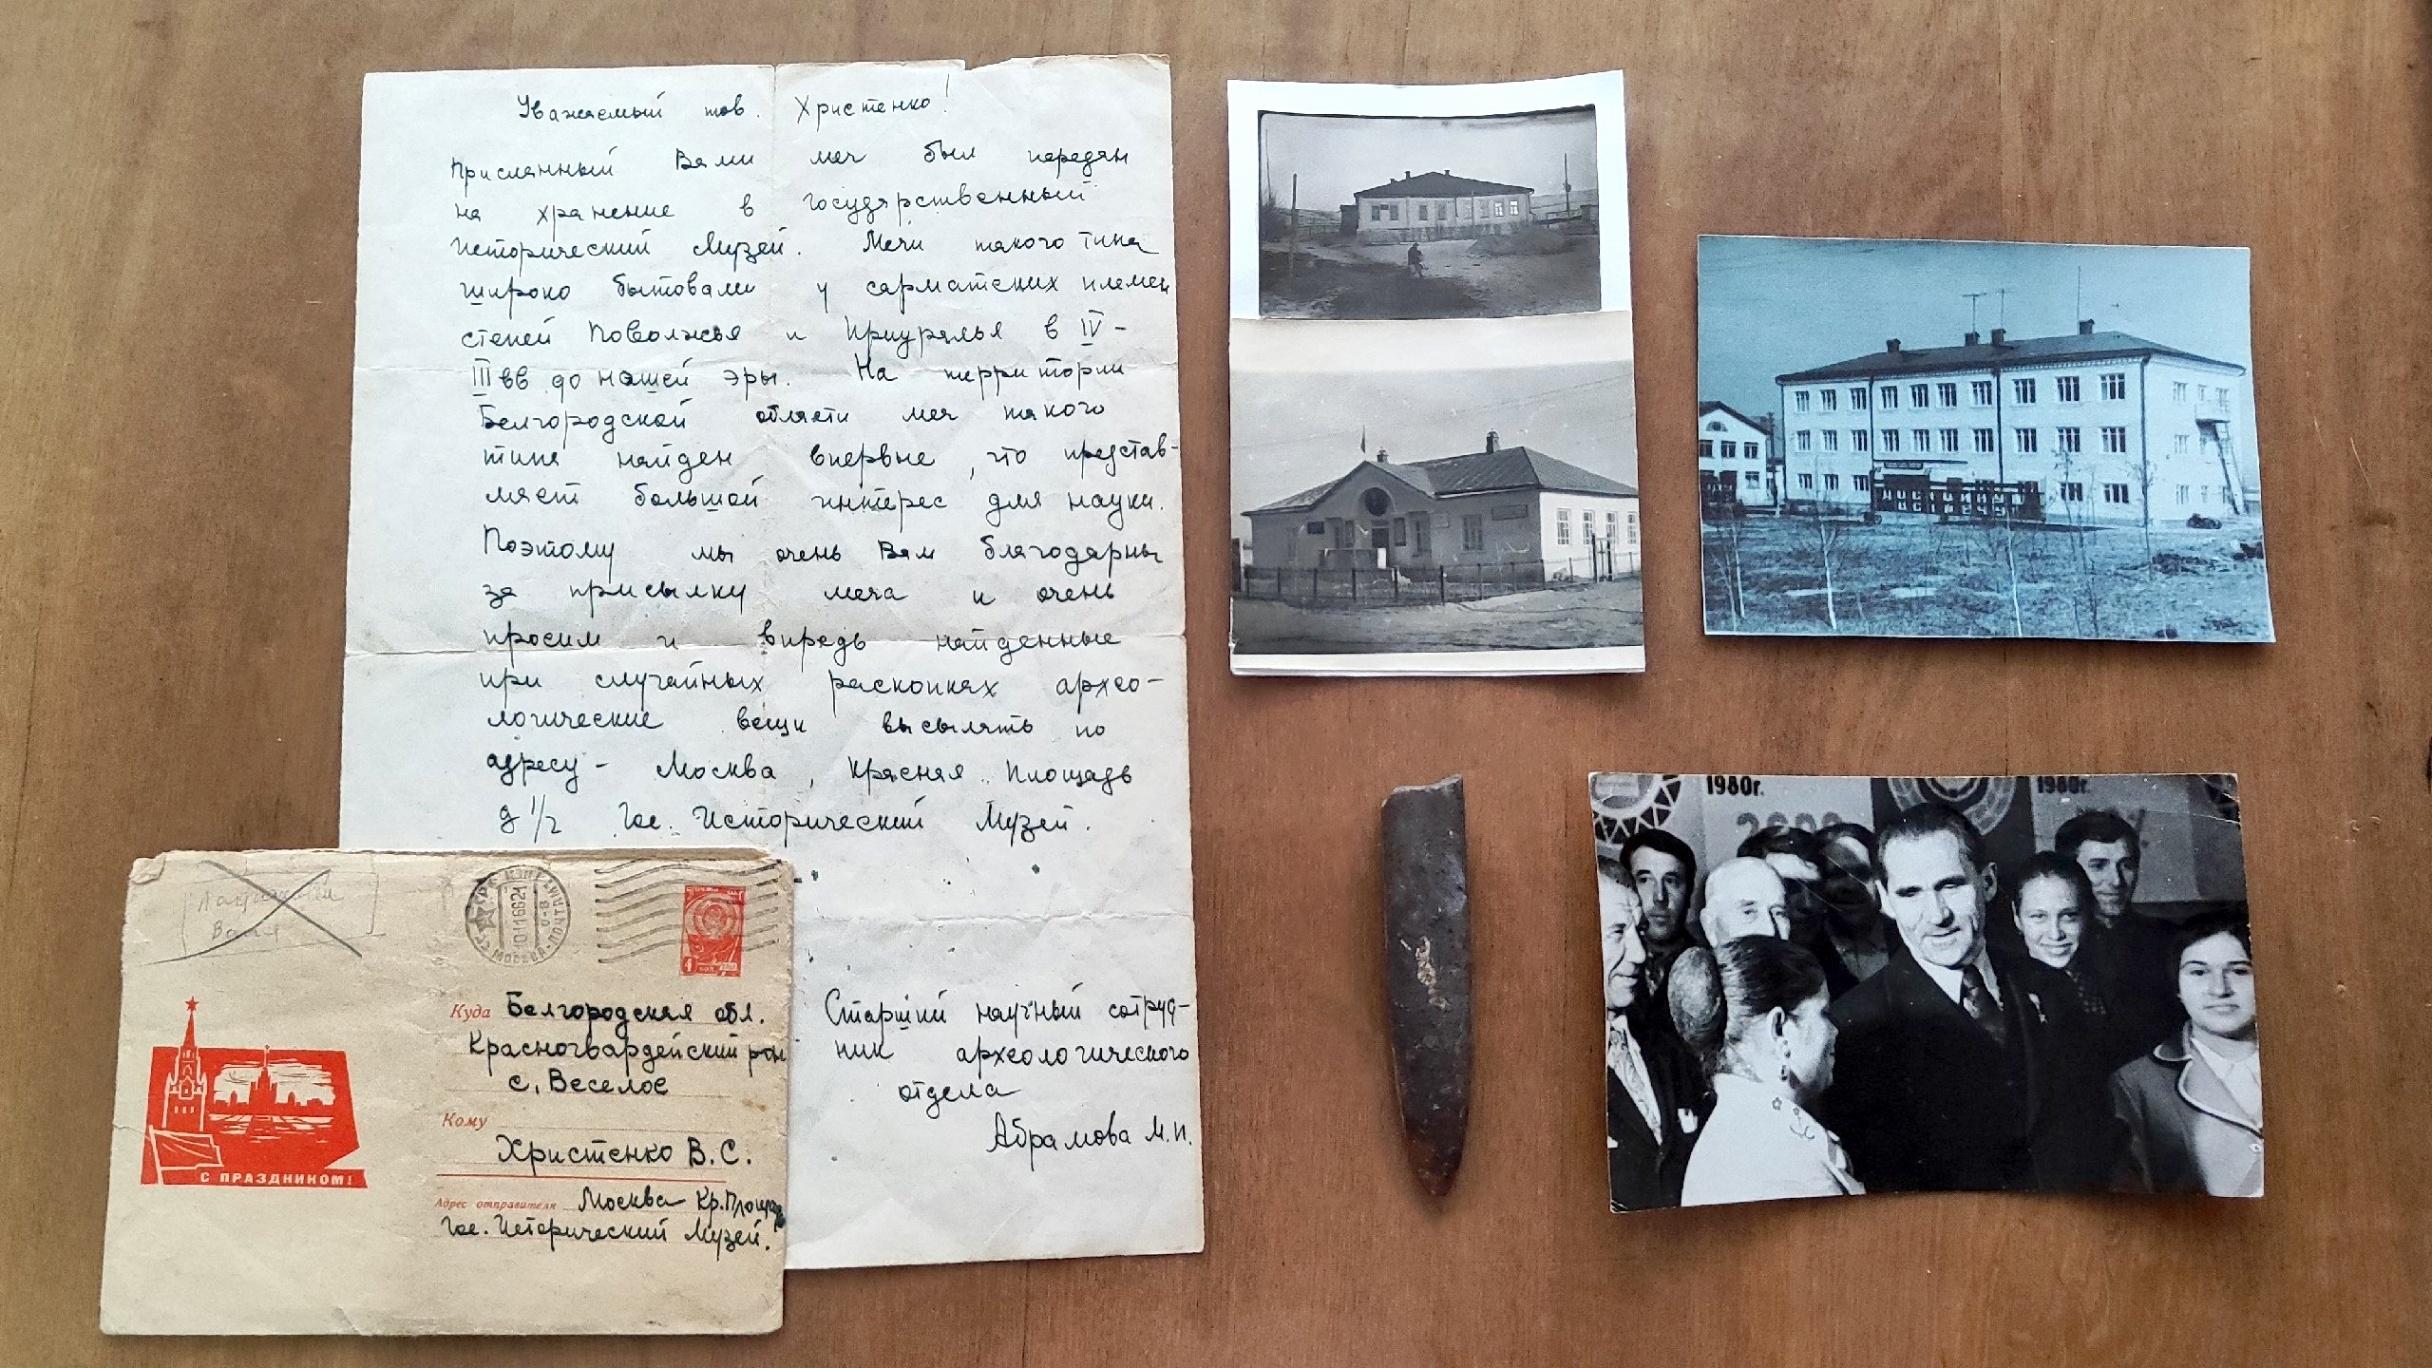 Уважаемый тов. Христенко!
Присланный Вами меч был передан
на хранение в Государственный
Исторический Музей. Мечи такого типа
широко бытовали у сарматских племен
степей Поволжья и Приуралья в IV-
III вв до нашей эры. На территории
Белгородской области меч такого
типа найден впервые, что представ-
ляет большой интерес для науки.
Поэтому мы очень Вам благодарны
за присылку меча и очень
просим и впредь найденные
при случайных раскопках архео-
логические вещи высылать по
адресу - Москва, Красная Площадь
д 1/2 Гос. Исторический Музей.
Старший научный сотруд-
ник археологического
отдела
Абрамова М.П.
МОСКВА
4 КОП
Куда Белгородская обл.
Красногвардейский рон
с. Веселое
Кому
Христенко В.С.
Адрес отправителя Москва Кр. Площадь
Гос. Исторический Музей.
С ПРАЗДНИКОМ!
1980г. 1980г.